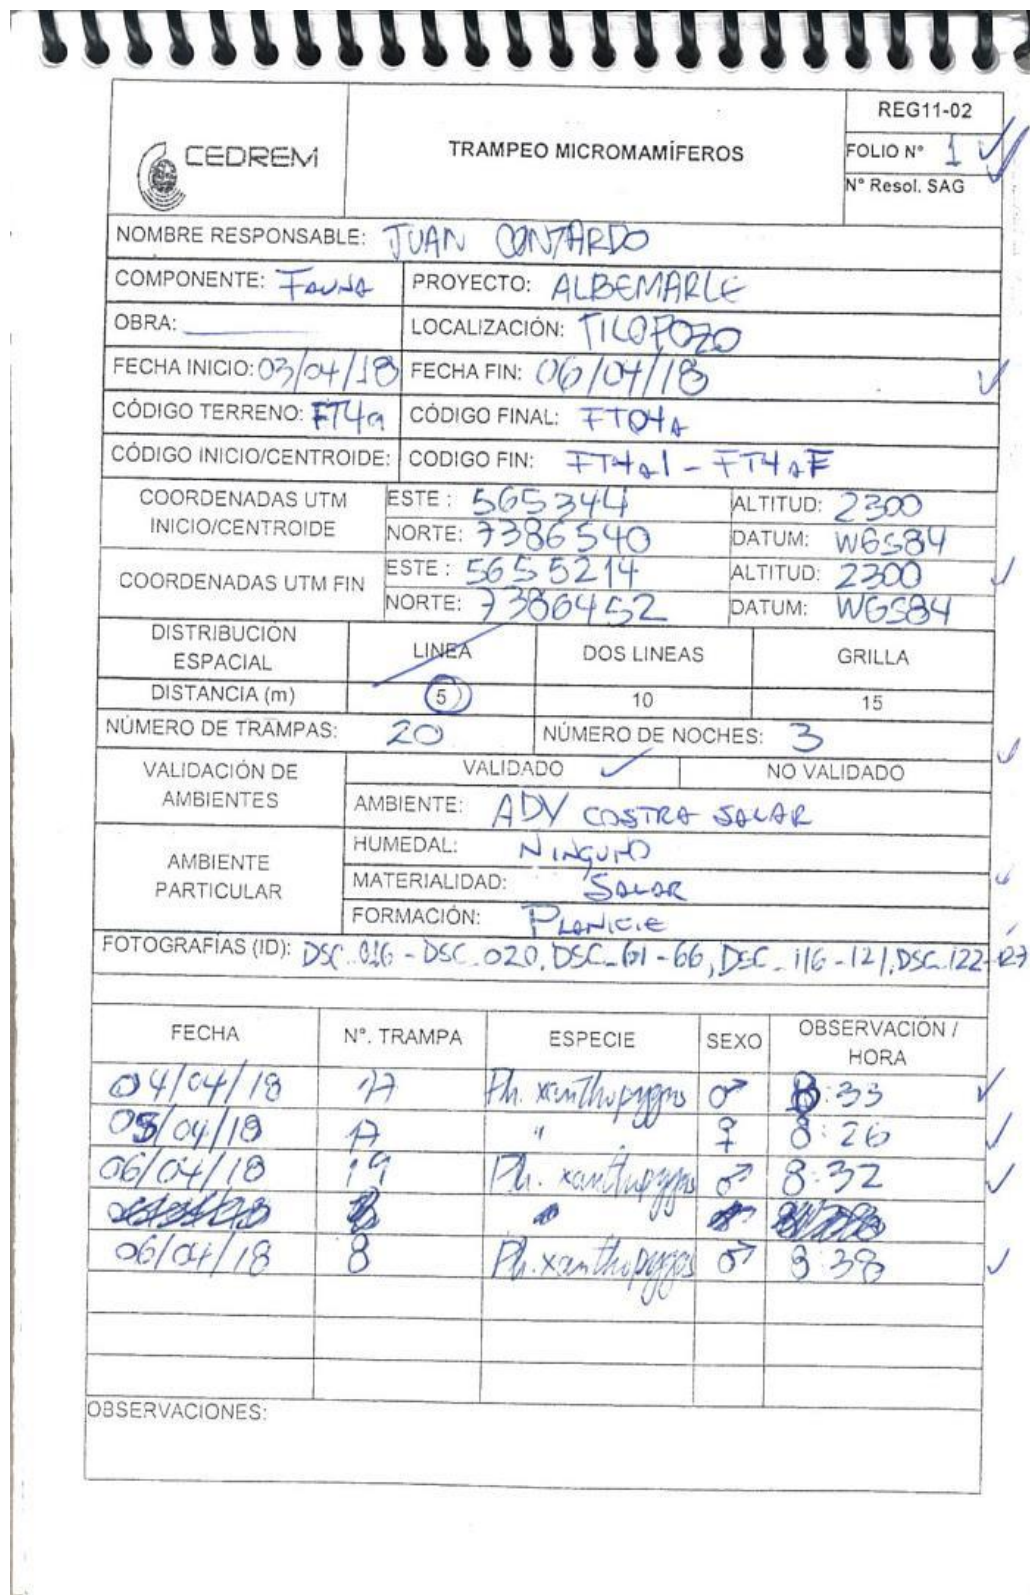 REG11-02
CEDREM
TRAMPEO MICROMAMÍFEROS
FOLIO N° 1
N° Resol. SAG
NOMBRE RESPONSABLE: JUAN CONTARDO
COMPONENTE: FAUNA PROYECTO: ALBEMARLE
OBRA: LOCALIZACIÓN: TILOPOZO
FECHA INICIO: 03/04/18 FECHA FIN: 06/04/18
CÓDIGO TERRENO: FT4a CÓDIGO FINAL: FT04A
CÓDIGO INICIO/CENTROIDE: CODIGO FIN: FT4a1 - FT4aF
COORDENADAS UTM INICIO/CENTROIDE ESTE : 565344 ALTITUD: 2300
NORTE: 7386540 DATUM: WGS84
COORDENADAS UTM FIN ESTE : 5655214 ALTITUD: 2300
NORTE: 7386452 DATUM: WGS84
DISTRIBUCIÓN ESPACIAL LINEA DOS LINEAS GRILLA
DISTANCIA (m) 5 10 15
NÚMERO DE TRAMPAS: 20 NÚMERO DE NOCHES: 3
VALIDACIÓN DE AMBIENTES VALIDADO NO VALIDADO
AMBIENTE: ADV COSTRA SALAR
AMBIENTE PARTICULAR HUMEDAL: NINGUNO
MATERIALIDAD: SALAR
FORMACIÓN: PLANICIE
FOTOGRAFÍAS (ID): DSC_016 - DSC_020, DSC_61-66, DSC_116-121, DSC_122-127
FECHA N°. TRAMPA ESPECIE SEXO OBSERVACIÓN / HORA
04/04/18 17 Ph. xanthopygus ♂ 8:33
05/04/18 17 " ♀ 8:26
06/04/18 19 Ph. xanthopygus ♂ 8:32
06/04/18 8 Ph. xanthopygus ♂ 8:38
OBSERVACIONES: